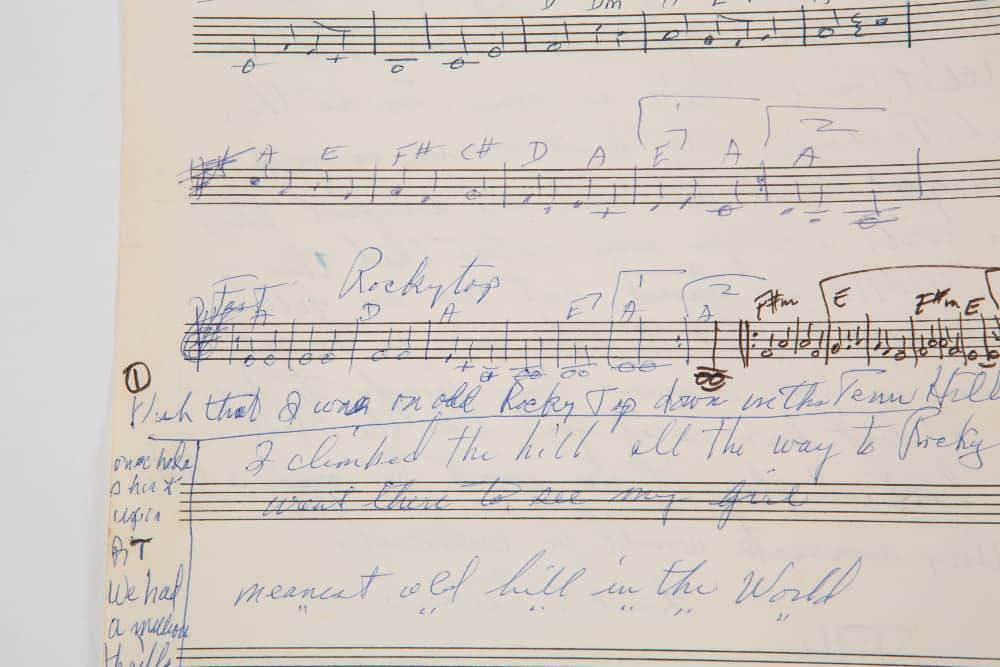 D Dm
1 2
A E F# C# D A E7 A A
Rocky top
Fast 1 2
D A D A E7 A A F#m E F#m E
①
Wish that I was on old Rocky Top down in the Tenn Hill
I climbed the hill all the way to Rocky
once had a
went there to see my girl
shirt
up in
AT
We had
meanest old hill in the World
a million
thrills